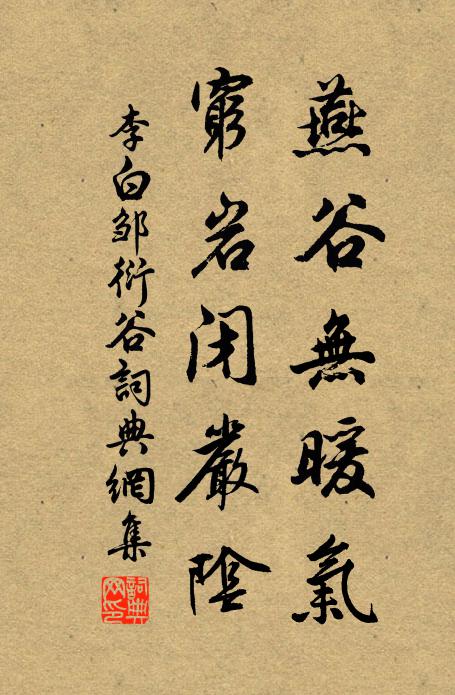 燕谷無暖氣
窮岩闭嚴陰
李白邹衍谷詞典網集
詞典网印